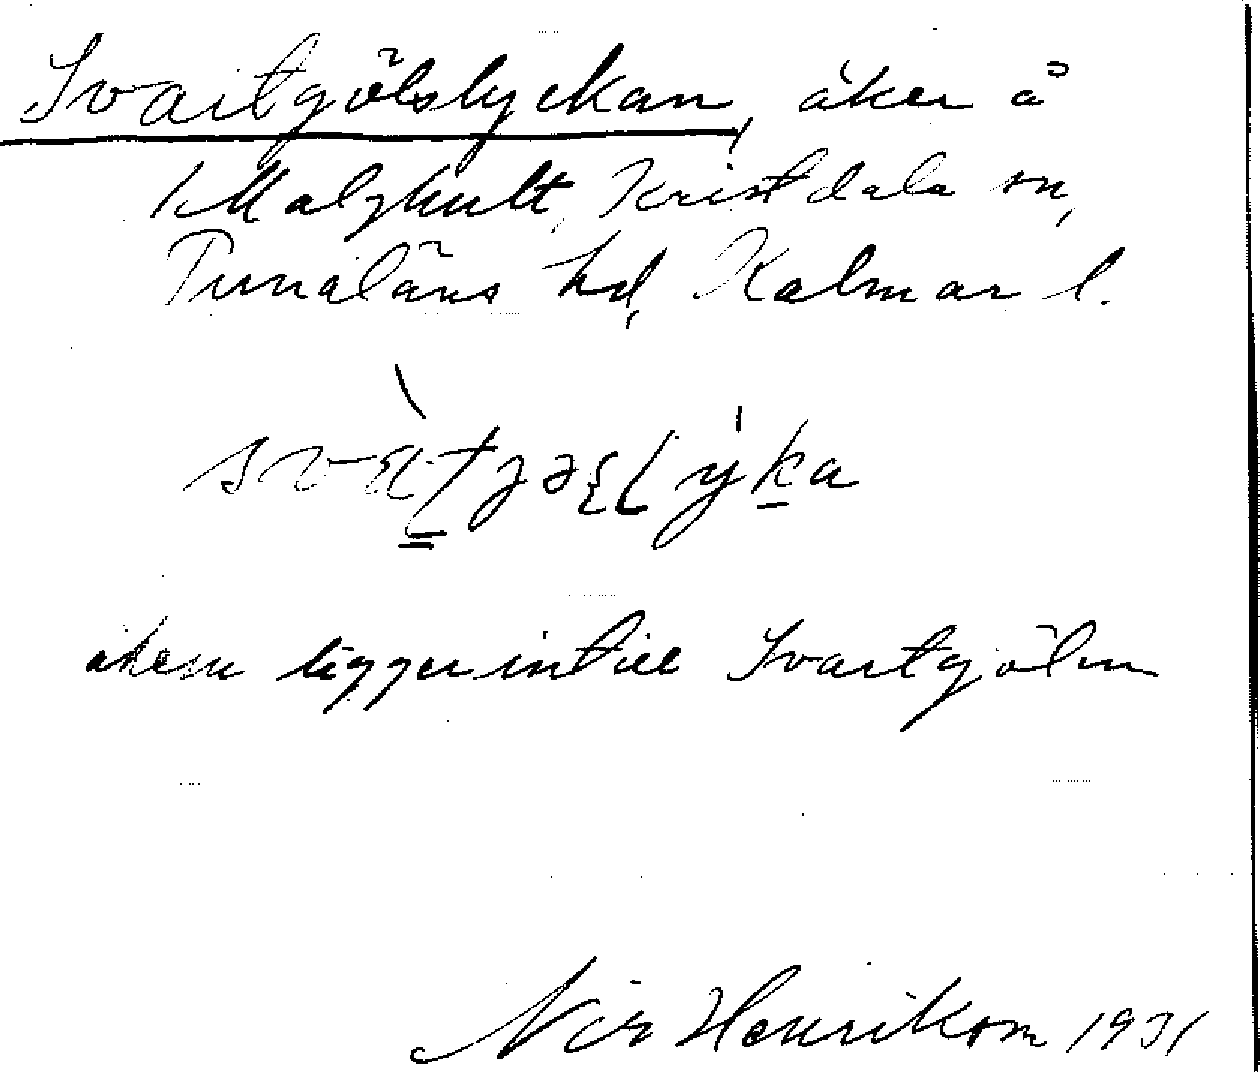 Svartgölslyckan, åker å
Malghult, Kristdala sn,
Tunaläns hd, Kalmar l.
åkern ligger intill Svartgöln
Henrikson 1931